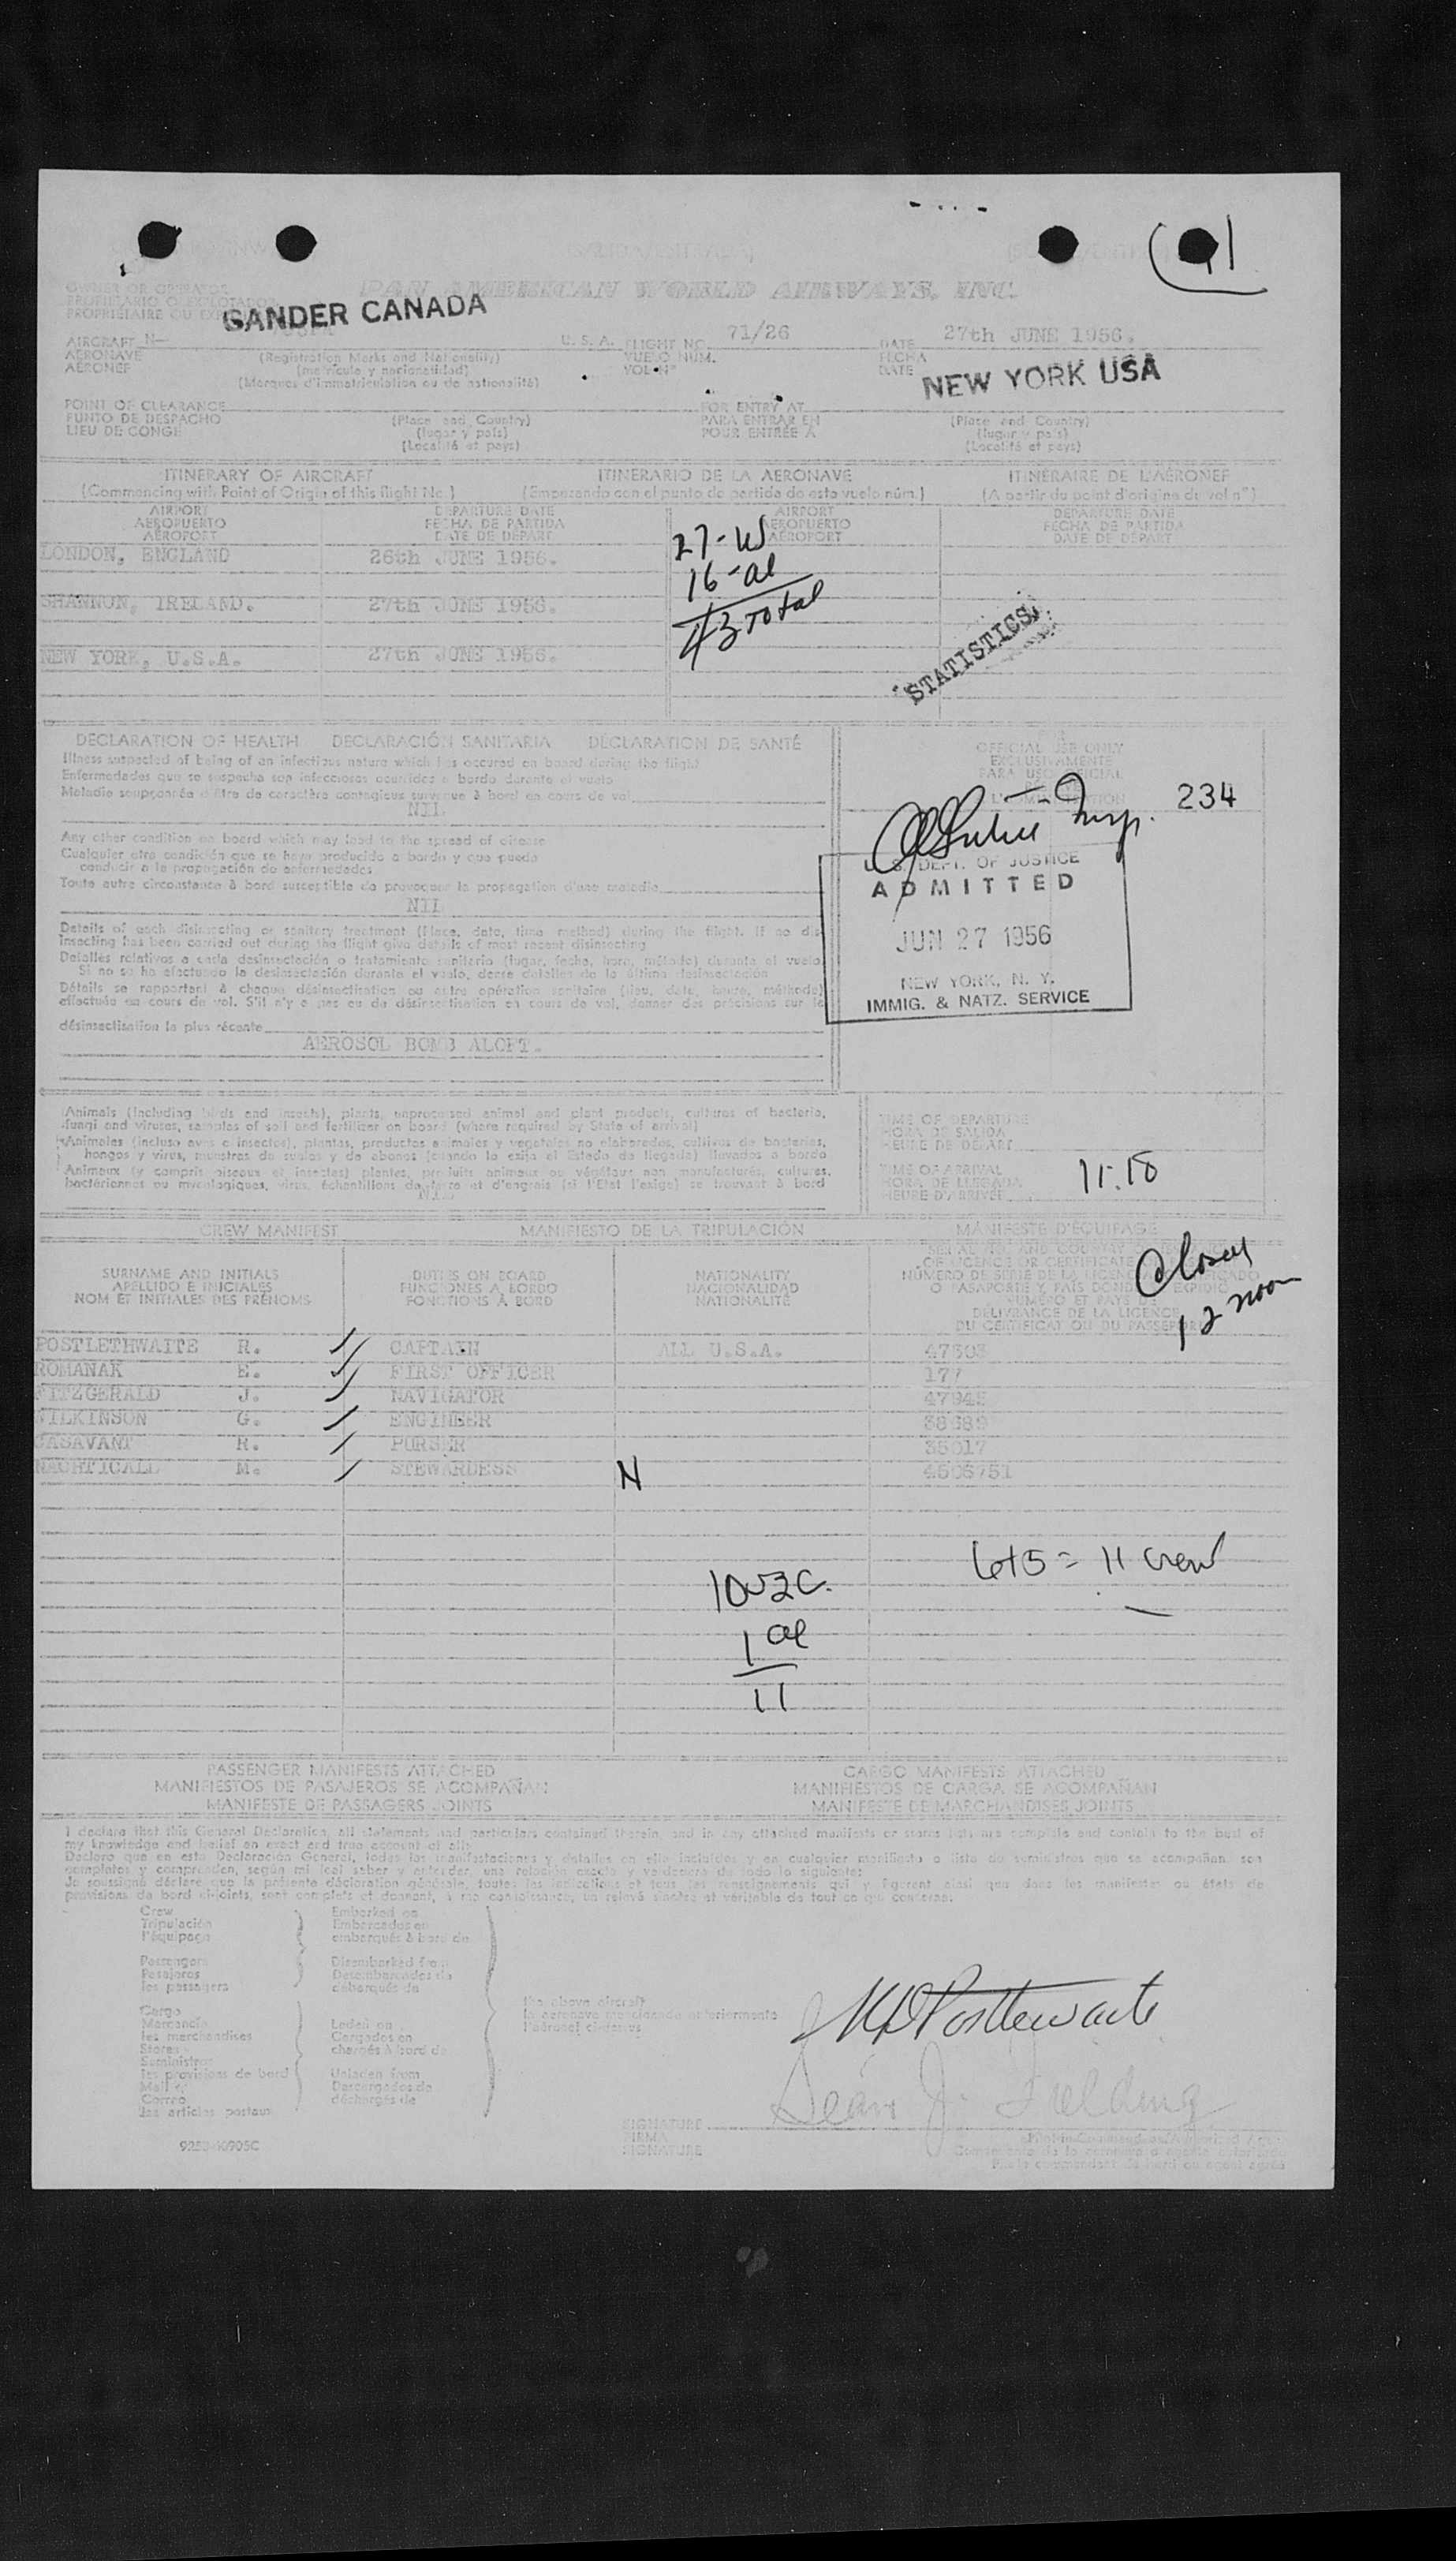 PAN AMERICAN WORLD AIRWAYS, INC.
OWNER OR OPERATOR
PROPIETARIO O EXPLOTADOR
PROPRIÉTAIRE OU
GANDER CANADA
AIRCRAFT N- U.S.A. FLIGHT NO. 71/26 DATE 27th JUNE 1956.
AERONAVE (Registration Marks and Nationality) VUELO NÚM. FECHA
AÉRONEF (matrícula y nacionalidad) VOL Nº DATE
(Marques d'immatriculation ou de nationalité)
NEW YORK USA
POINT OF CLEARANCE (Place and Country) FOR ENTRY AT (Place and Country)
PUNTO DE DESPACHO (lugar y país) PARA ENTRAR EN (lugar y país)
LIEU DE CONGÉ (Localité et pays) POUR ENTRÉE À (Localité et pays)
ITINERARY OF AIRCRAFT ITINERARIO DE LA AERONAVE ITINÉRAIRE DE L'AÉRONEF
(Commencing with Point of Origin of this flight No.) (Empezando con el punto de partida de este vuelo núm.) (A partir du point d'origine de vol nº)
AIRPORT DEPARTURE DATE AIRPORT DEPARTURE DATE
AEROPUERTO FECHA DE PARTIDA AEROPUERTO FECHA DE PARTIDA
AÉROPORT DATE DE DÉPART AÉROPORT DATE DE DÉPART
LONDON, ENGLAND 26th JUNE 1956.
27-W
16-al
43 Total
SHANNON, IRELAND. 27th JUNE 1956.
NEW YORK, U.S.A. 27th JUNE 1956.
STATISTICS
DECLARATION OF HEALTH DECLARACIÓN SANITARIA DÉCLARATION DE SANTÉ
Illness suspected of being of an infectious nature which has occured on board during the flight
Enfermedades que se sospecha son infecciosas ocurridas a bordo durante el vuelo
Maladie soupçonnée d'être de caractère contagieux survenue à bord en cours de vol
NIL
Any other condition on board which may lead to the spread of disease
Cualquier otra condición que se haya producido a bordo y que pueda
conducir a la propagación de enfermedades
Toute autre circonstance à bord susceptible de provoquer la propagation d'une maladie
NIL
Details of each disinsecting or sanitary treatment (Place, date, time method) during the flight. If no dis-
insecting has been carried out during the flight give details of most recent disinsecting
Detalles relativos a cada desinsectación o tratamiento sanitario (lugar, fecha, hora, método) durante el vuelo.
Si no se ha efectuado la desinsectación durante el vuelo, dense detalles de la última desinsectación
Détails se rapportant à chaque désinsectisation ou autre opération sanitaire (lieu, date, heure, méthode)
effectuée au cours de vol. S'il n'y a pas eu de désinsectisation en cours de vol, donner des précisions sur la
désinsectisation la plus récente
AEROSOL BOMB ALOFT.
FOR
OFFICIAL USE ONLY
EXCLUSIVAMENTE
PARA USO OFICIAL
Insp. 234
U. S. DEPT. OF JUSTICE
ADMITTED
JUN 27 1956
NEW YORK, N. Y.
IMMIG. & NATZ. SERVICE
Animals (including birds and insects), plants, unprocessed animal and plant products, cultures of bacteria,
fungi and viruses, samples of soil and fertilizer on board (where required by State of arrival)
Animales (incluso aves e insectos), plantas, productos animales y vegetales no elaborados, cultivos de bacterias,
hongos y virus, muestras de suelos y de abonos (cuando lo exija el Estado de llegada) llevados a bordo
Animaux (y compris oiseaux et insectes) plantes, produits animaux ou végétaux non manufacturés, cultures
bactériennes ou mycologiques, virus, échantillons de terre et d'engrais (si l'Etat l'exige) se trouvant à bord
NIL
TIME OF DEPARTURE
HORA DE SALIDA
HEURE DE DÉPART
TIME OF ARRIVAL
HORA DE LLEGADA
HEURE D'ARRIVÉE
11:18
CREW MANIFEST MANIFIESTO DE LA TRIPULACIÓN MANIFESTE D'ÉQUIPAGE
SURNAME AND INITIALS DUTIES ON BOARD NATIONALITY
APELLIDO E INICIALES FUNCIONES A BORDO NACIONALIDAD
NOM ET INITIALES DES PRÉNOMS FONCTIONS À BORD NATIONALITÉ
Closed
12 noon
POSTLETHWAITE R. CAPTAIN ALL U.S.A. 47303
ROMANAK E. FIRST OFFICER 177
FITZGERALD J. NAVIGATOR 47945
WILKINSON G. ENGINEER 38689
CASAVANT R. PURSER 35017
M. STEWARDESS N 4506751
6+5 = 11 Crew
10 USC.
1 al
11
PASSENGER MANIFESTS ATTACHED CARGO MANIFESTS ATTACHED
MANIFIESTOS DE PASAJEROS SE ACOMPAÑAN MANIFIESTOS DE CARGA SE ACOMPAÑAN
MANIFESTE DE PASSAGERS JOINTS MANIFESTE DE MARCHANDISES JOINTS
I declare that this General Declaration, all statements and particulars contained therein, and in any attached manifests or stores lists are complete and contain to the best of
my knowledge and belief an exact and true account of all:
Declaro que en esta Declaración General, todas las manifestaciones y detalles en ella incluidos y en cualquier manifiesto o lista de suministros que se acompañan, son
completos y comprenden, según mi leal saber y entender, una relación exacta y verdadera de todo lo siguiente:
Je soussigné déclare que la présente déclaration générale, toutes les indications et tous les renseignements qui y figurent ainsi que dans les manifestes ou états de
provisions de bord ci-joints, sont complets et donnent, à ma connaissance, un relevé sincère et véritable de tout ce qui concerne:
Crew Embarked on
Tripulación Embarcados en
l'équipage embarqués à bord de
Passengers Disembarked from
Pasajeros Desembarcados de
les passagers débarqués de
Cargo
Mercancía Laden on
les merchandises Cargados en
Stores chargés à bord de
Suministros
les provisions de bord Unladen from
Mail Descargados de
Correo déchargés de
les articles postaux
the above aircraft
la aeronave mencionada anteriormente
l'aéronef ci-dessus
Postlewaite
Seán J. Fielding
SIGNATURE
FIRMA
SIGNATURE